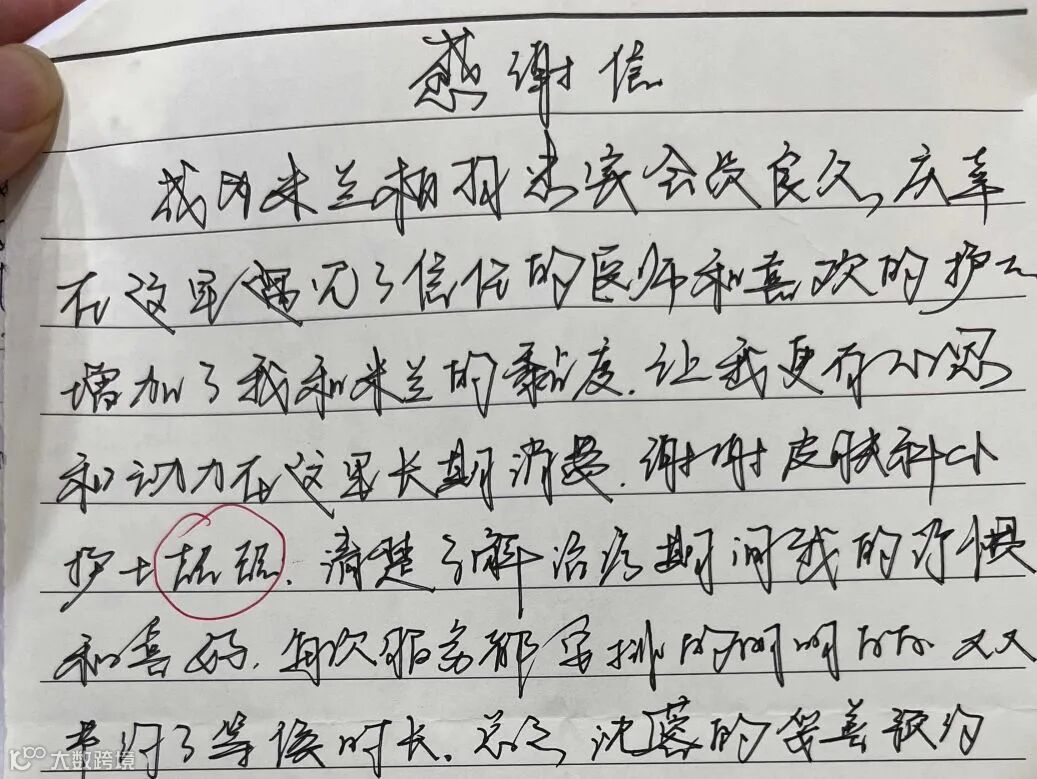 感谢信
我为米兰柏羽忠实会员良久,庆幸
在这里遇见了信任的医师和喜欢的护士
增加了我和米兰的黏度.让我更有
和动力在这里长期消费.谢谢皮肤科
护士.清楚了解治疗期间我的习惯
和喜好.每次服务都安排的明明白白
节约了等候时长.总之,沈蓉的妥善预约
大数跨境